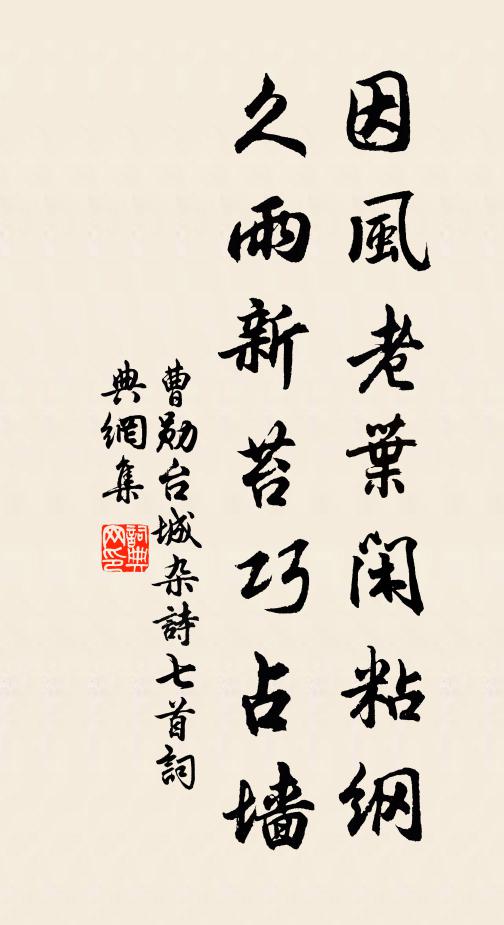 因風老葉閑粘網
久雨新苔巧占墻
曹勛台城杂詩七首詞
典網集
詞典網印